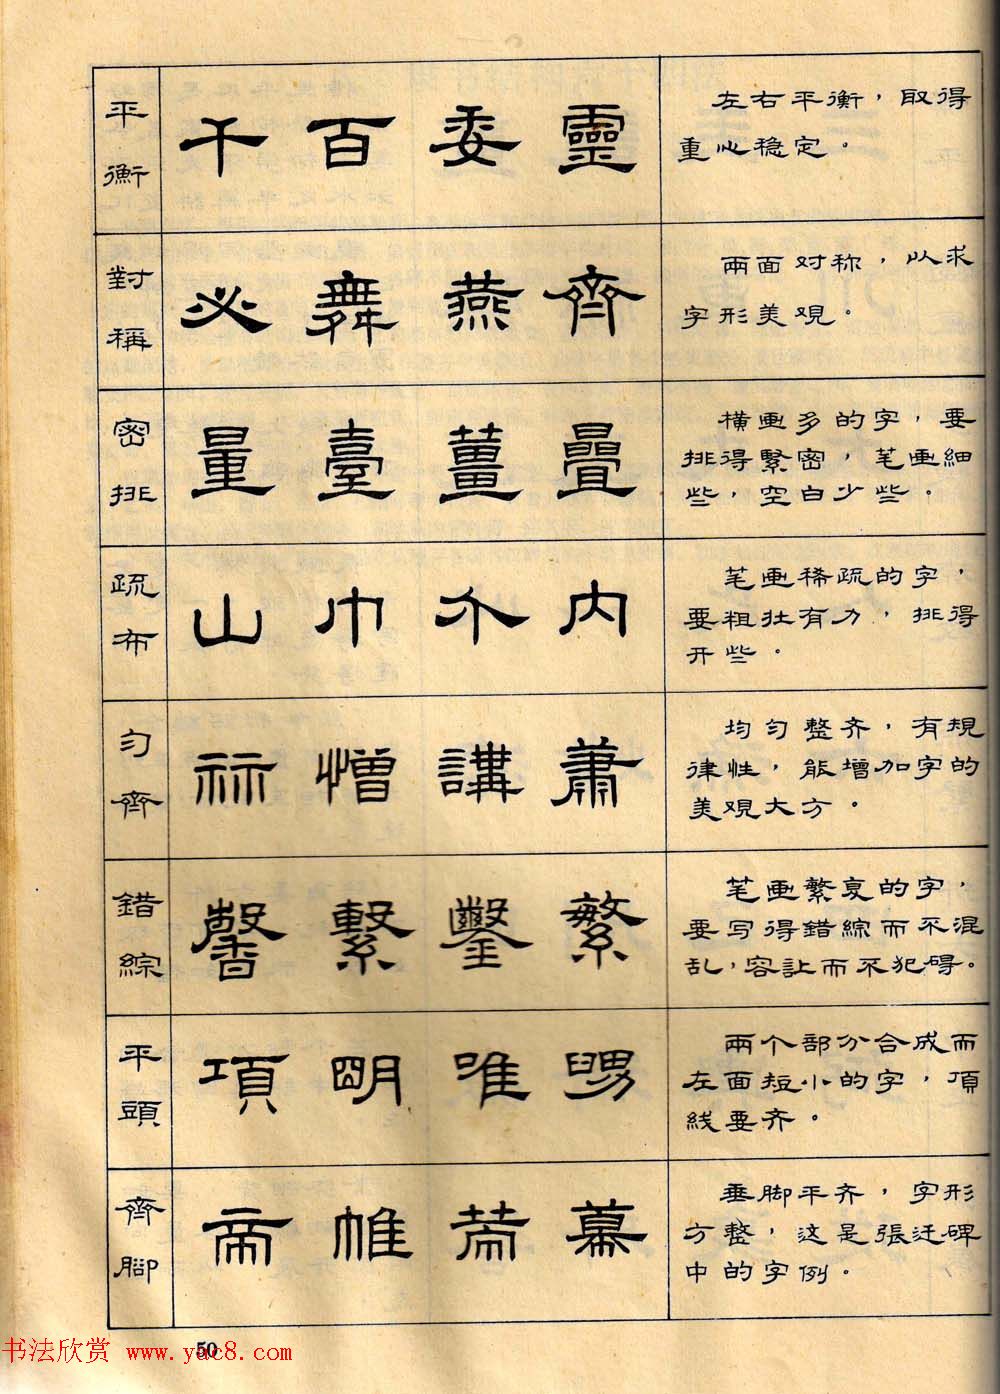 平衡
千 百 委 靈
左右平衡，取得
重心稳定。
對稱
必 舞 燕 齊
兩面对称，以求
字形美观。
密排
量 臺 薑 疊
横画多的字，要
排得緊密，笔画细
些，空白少些。
疏布
山 巾 介 内
笔画稀疏的字，
要粗壮有力，排得
开些。
匀齊
祘 憎 講 蕭
均匀整齐，有規
律性，能增加字的
美观大方。
錯綜
馨 繫 鑿 繁
笔画繁复的字，
要写得錯綜而不混
乱，容让而不犯碍。
平頭
項 明 唯
兩个部分合成而
左面短小的字，頂
线要齐。
齊腳
帝 帷
垂脚平齐，字形
方整，这是張迁碑
中的字例。
50
书法欣赏 www.yac8.com